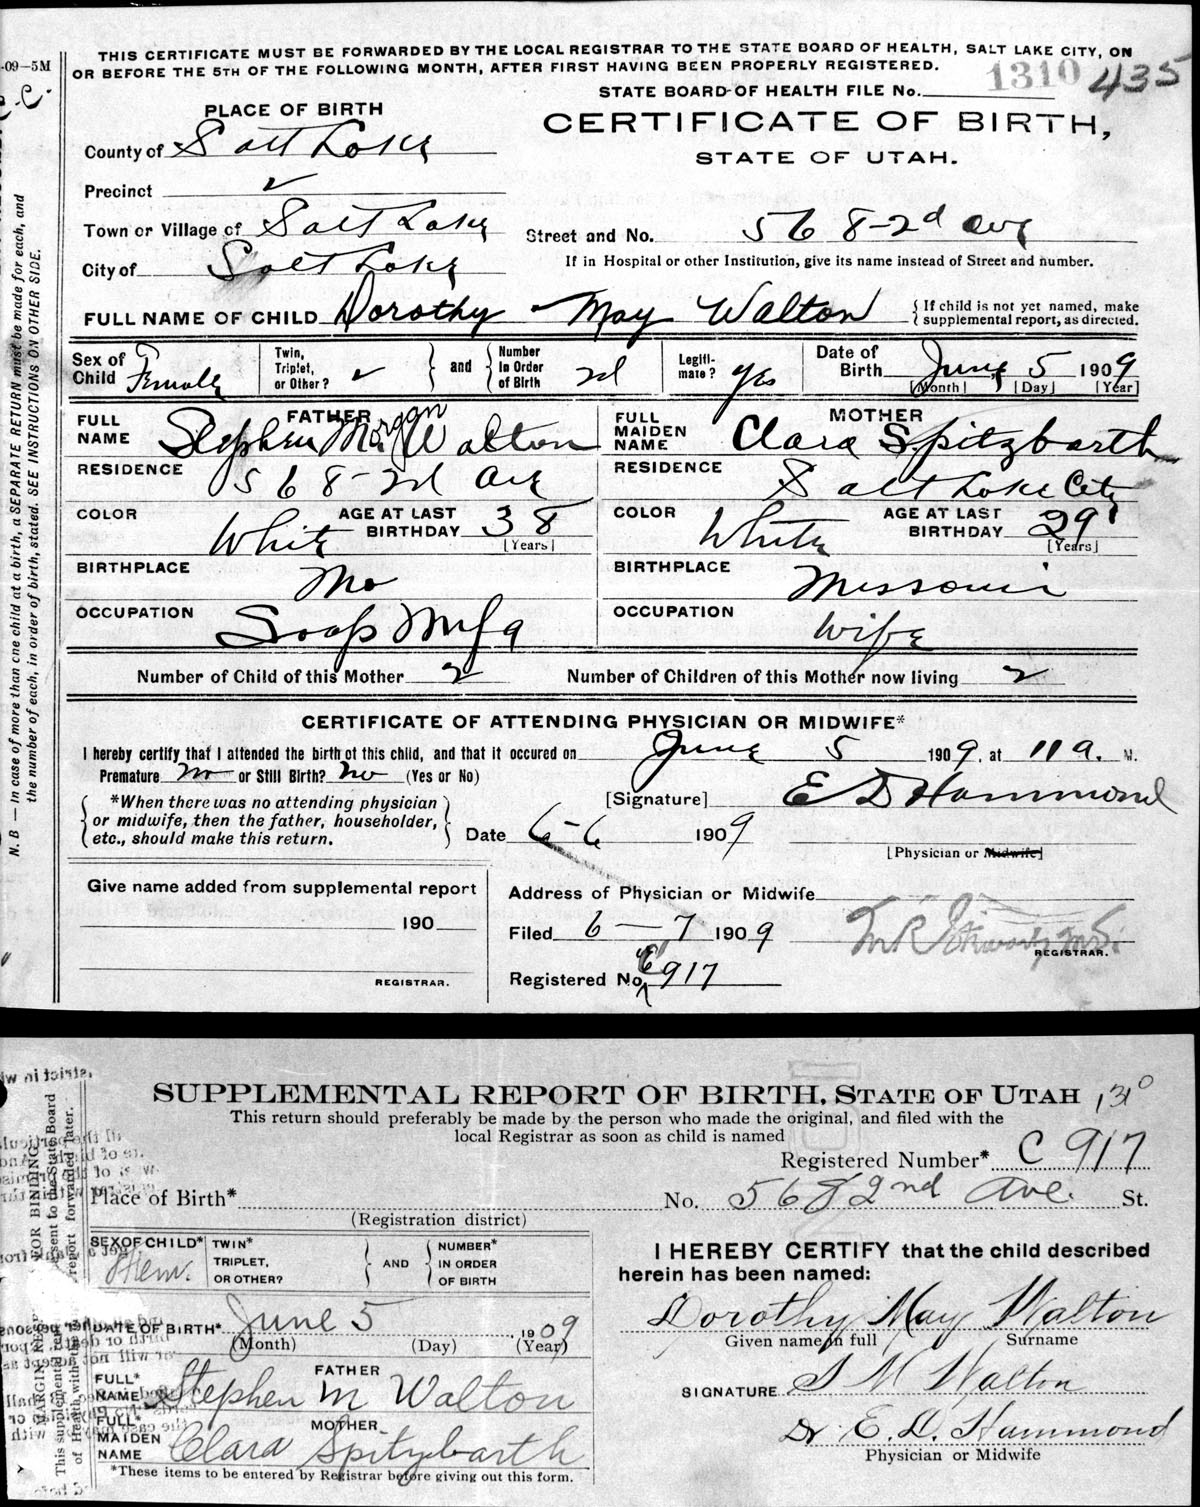 -09-5M
THIS CERTIFICATE MUST BE FORWARDED BY THE LOCAL REGISTRAR TO THE STATE BOARD OF HEALTH, SALT LAKE CITY, ON
OR BEFORE THE 5TH OF THE FOLLOWING MONTH, AFTER FIRST HAVING BEEN PROPERLY REGISTERED.
STATE BOARD OF HEALTH FILE No. 1310 435
PLACE OF BIRTH
CERTIFICATE OF BIRTH,
STATE OF UTAH.
County of Salt Lake
Precinct
Town or Village of Salt Lake
Street and No. 568-2d Ave
City of Salt Lake
If in Hospital or other Institution, give its name instead of Street and number.
FULL NAME OF CHILD Dorothy May Walton
{If child is not yet named, make
supplemental report, as directed.
Sex of Child Female
Twin, Triplet, or Other?
and
Number in Order of Birth 2d
Legitimate? yes
Date of Birth June 5 1909
[Month] [Day] [Year]
FATHER
FULL NAME Stephen Morgan Walton
MOTHER
FULL MAIDEN NAME Clara Spitzbarth
RESIDENCE 568-2d Ave
RESIDENCE Salt Lake City
COLOR White AGE AT LAST BIRTHDAY 38 [Years]
COLOR White AGE AT LAST BIRTHDAY 29 [Years]
BIRTHPLACE Mo
BIRTHPLACE Missouri
OCCUPATION Soap Mnfg
OCCUPATION Wife
Number of Child of this Mother 2
Number of Children of this Mother now living 2
CERTIFICATE OF ATTENDING PHYSICIAN OR MIDWIFE*
I hereby certify that I attended the birth of this child, and that it occured on June 5 1909, at 11 a. M.
Premature no or Still Birth? no (Yes or No)
*When there was no attending physician
or midwife, then the father, householder,
etc., should make this return.
[Signature] E D Hammond
Date 6-6 1909
[Physician or Midwife]
Give name added from supplemental report
190
REGISTRAR.
Address of Physician or Midwife
Filed 6-7 1909
REGISTRAR.
Registered No. "C" 917
N. B.—In case of more than one child at a birth, a SEPARATE RETURN must be made for each, and
the number of each, in order of birth, stated. SEE INSTRUCTIONS ON OTHER SIDE.
SUPPLEMENTAL REPORT OF BIRTH, STATE OF UTAH 1310
This return should preferably be made by the person who made the original, and filed with the
local Registrar as soon as child is named
Registered Number* C 917
Place of Birth* No. 568 2nd Ave. St.
(Registration district)
SEX OF CHILD* Fem.
TWIN* TRIPLET, OR OTHER?
AND
NUMBER* IN ORDER OF BIRTH
I HEREBY CERTIFY that the child described
herein has been named:
DATE OF BIRTH* June 5, 1909
(Month) (Day) (Year)
Dorothy May Walton
Given name in full Surname
FATHER
FULL* NAME Stephen M Walton
SIGNATURE S M Walton
MOTHER
FULL* MAIDEN NAME Clara Spitzbarth
Dr E. D. Hammond
Physician or Midwife
*These items to be entered by Registrar before giving out this form.